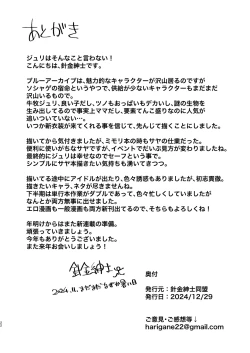 あとがき
ジュリはそんなこと言わない！
こんにちは、針金紳士です。
ブルーアーカイブは、魅力的なキャラクターが沢山居るのですが
ソシャゲの宿命というやつで、供給が少ないキャラクターもまだまだ
沢山いるもので。
牛牧ジュリ、良い子だし、ツノもおっぱいもデカいし、謎の生物を
生み出してるので事実上ママだし、要素てんこ盛りなのに人気が
追いついていない…。
いつか新衣装が来てくれる事を信じて、先んじて描くことにしました。
描いてから気付きましたが、ミモリ本の時もサヤの仕業だった。
便利にしがちなサヤですが、イベントでだいぶお見方が変わりましたね。
最終的によりは幸せなのでセーフという事で。
シンプルにサヤ本描きたい気持ちも高まってきました。
描いてる途中にアイドルが出たり、色々誘惑もありましたが、初志貫徹。
描きたいキャラ、ネタが尽きませんね。
下半期は単行本作業がダブルであって、色々忙しくしていましたが
なんとか両方無事に出せました。
エロ漫画も一般漫画も両方新刊出てるので、そちらもよろしくね！
年明けからはまた新連載の準備。
頑張っていきましょう。
今年もありがとうございました。
また来年お会いしましょう！
針金紳士
奥付
発行元：針金紳士同盟
発行日：2024/12/29
ご意見・ご感想等↓
harigane22@gmail.com